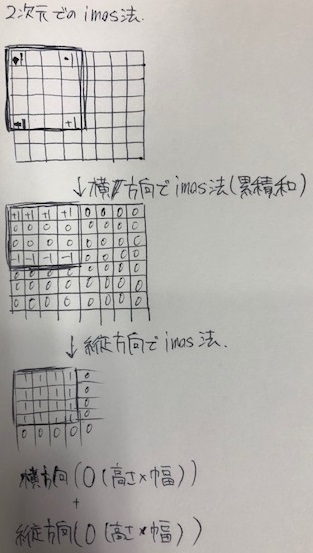 2次元でのimos法.
+1 -1
-1 +1
↓横方向でimos法(累積和)
+1 +1 +1 +1 0 0 0 0
0 0 0 0 0 0 0 0
0 0 0 0 0 0 0 0
-1 -1 -1 -1 0 0 0 0
0 0 0 0 0 0 0 0
0 0 0 0 0 0 0 0
0 0 0 0 0 0 0 0
↓縦方向でimos法.
1 1 1 1 0
1 1 1 1 0
1 1 1 1 0
1 1 1 1 0
0 0 0 0 0
横方向(O(高さ×幅))
+
縦方向(O(高さ×幅))